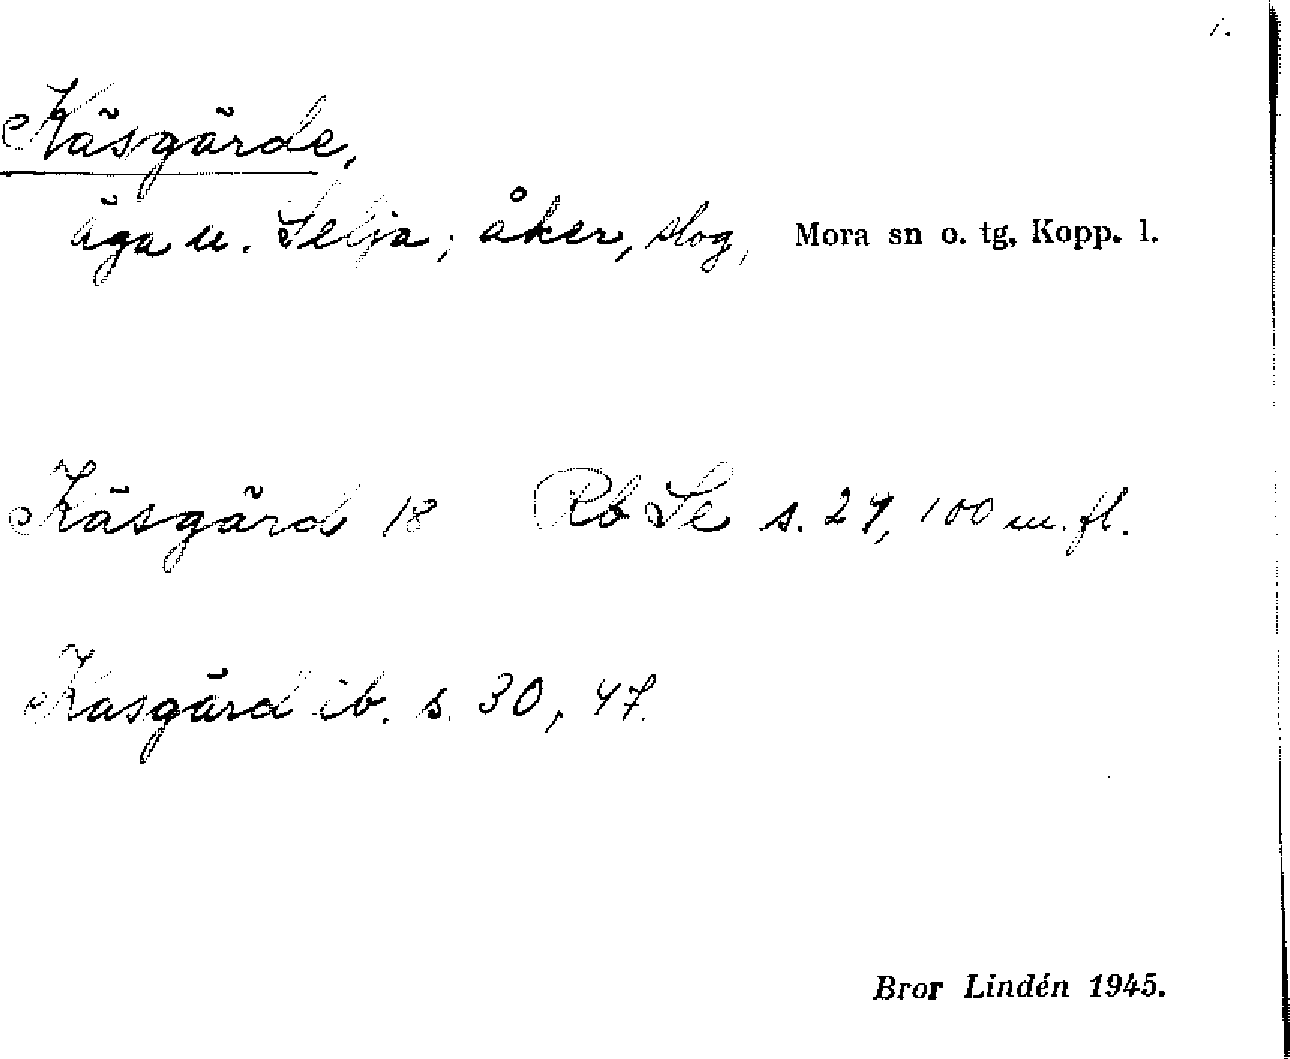 1.
Käsgärde,
äga u. Selja; åker, slog, Mora sn o. tg, Kopp. l.
Käsgärd 18 Rb Se s. 29, 100 m. fl.
Kasgärd ib. s. 30, 47.
Bror Lindén 1945.